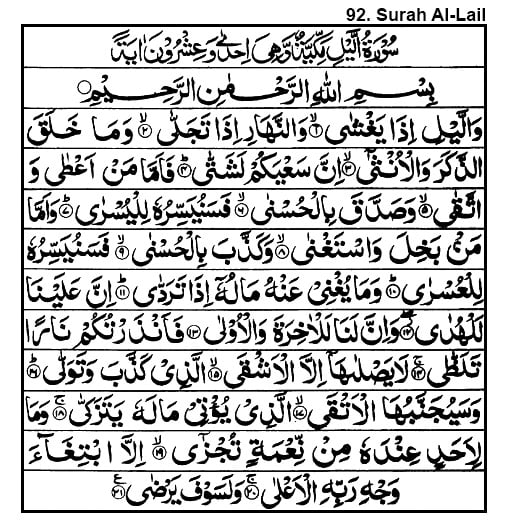 92. Surah Al-Lail
سُوْرَةُ الَّيْلِ مَكِّيَّةٌ وَّهِىَ اِحْدٰى وَعِشْرُوْنَ اٰيَةً
بِسْمِ اللهِ الرَّحْمٰنِ الرَّحِيْمِ
وَالَّيْلِ اِذَا يَغْشٰى ۙ﴿۱﴾ وَالنَّهَارِ اِذَا تَجَلّٰى ۙ﴿۲﴾ وَمَا خَلَقَ
الذَّكَرَ وَالْاُنْثٰٓى ۙ﴿۳﴾ اِنَّ سَعْيَكُمْ لَشَتّٰى ؕ﴿۴﴾ فَاَمَّا مَنْ اَعْطٰى وَ
اتَّقٰى ۙ﴿۵﴾ وَصَدَّقَ بِالْحُسْنٰى ۙ﴿۶﴾ فَسَنُيَسِّرُهٗ لِلْيُسْرٰى ؕ﴿۷﴾ وَاَمَّا
مَنْۢ بَخِلَ وَاسْتَغْنٰى ۙ﴿۸﴾ وَكَذَّبَ بِالْحُسْنٰى ۙ﴿۹﴾ فَسَنُيَسِّرُهٗ
لِلْعُسْرٰى ؕ﴿۱۰﴾ وَمَا يُغْنِىْ عَنْهُ مَالُهٗٓ اِذَا تَرَدّٰى ؕ﴿۱۱﴾ اِنَّ عَلَيْنَا
لَلْهُدٰى ۖ﴿۱۲﴾ وَاِنَّ لَنَا لَلْاٰخِرَةَ وَالْاُوْلٰى ﴿۱۳﴾ فَاَنْذَرْتُكُمْ نَارًا
تَلَظّٰى ۚ﴿۱۴﴾ لَا يَصْلٰىهَاۤ اِلَّا الْاَشْقَى ۙ﴿۱۵﴾ الَّذِىْ كَذَّبَ وَتَوَلّٰى ؕ﴿۱۶﴾
وَسَيُجَنَّبُهَا الْاَتْقَى ۙ﴿۱۷﴾ الَّذِىْ يُؤْتِىْ مَالَهٗ يَتَزَكّٰى ۚ﴿۱۸﴾ وَمَا
لِاَحَدٍ عِنْدَهٗ مِنْ نِّعْمَةٍ تُجْزٰٓى ۙ﴿۱۹﴾ اِلَّا ابْتِغَآءَ
وَجْهِ رَبِّهِ الْاَعْلٰى ۚ﴿۲۰﴾ وَلَسَوْفَ يَرْضٰى ﴿۲۱﴾